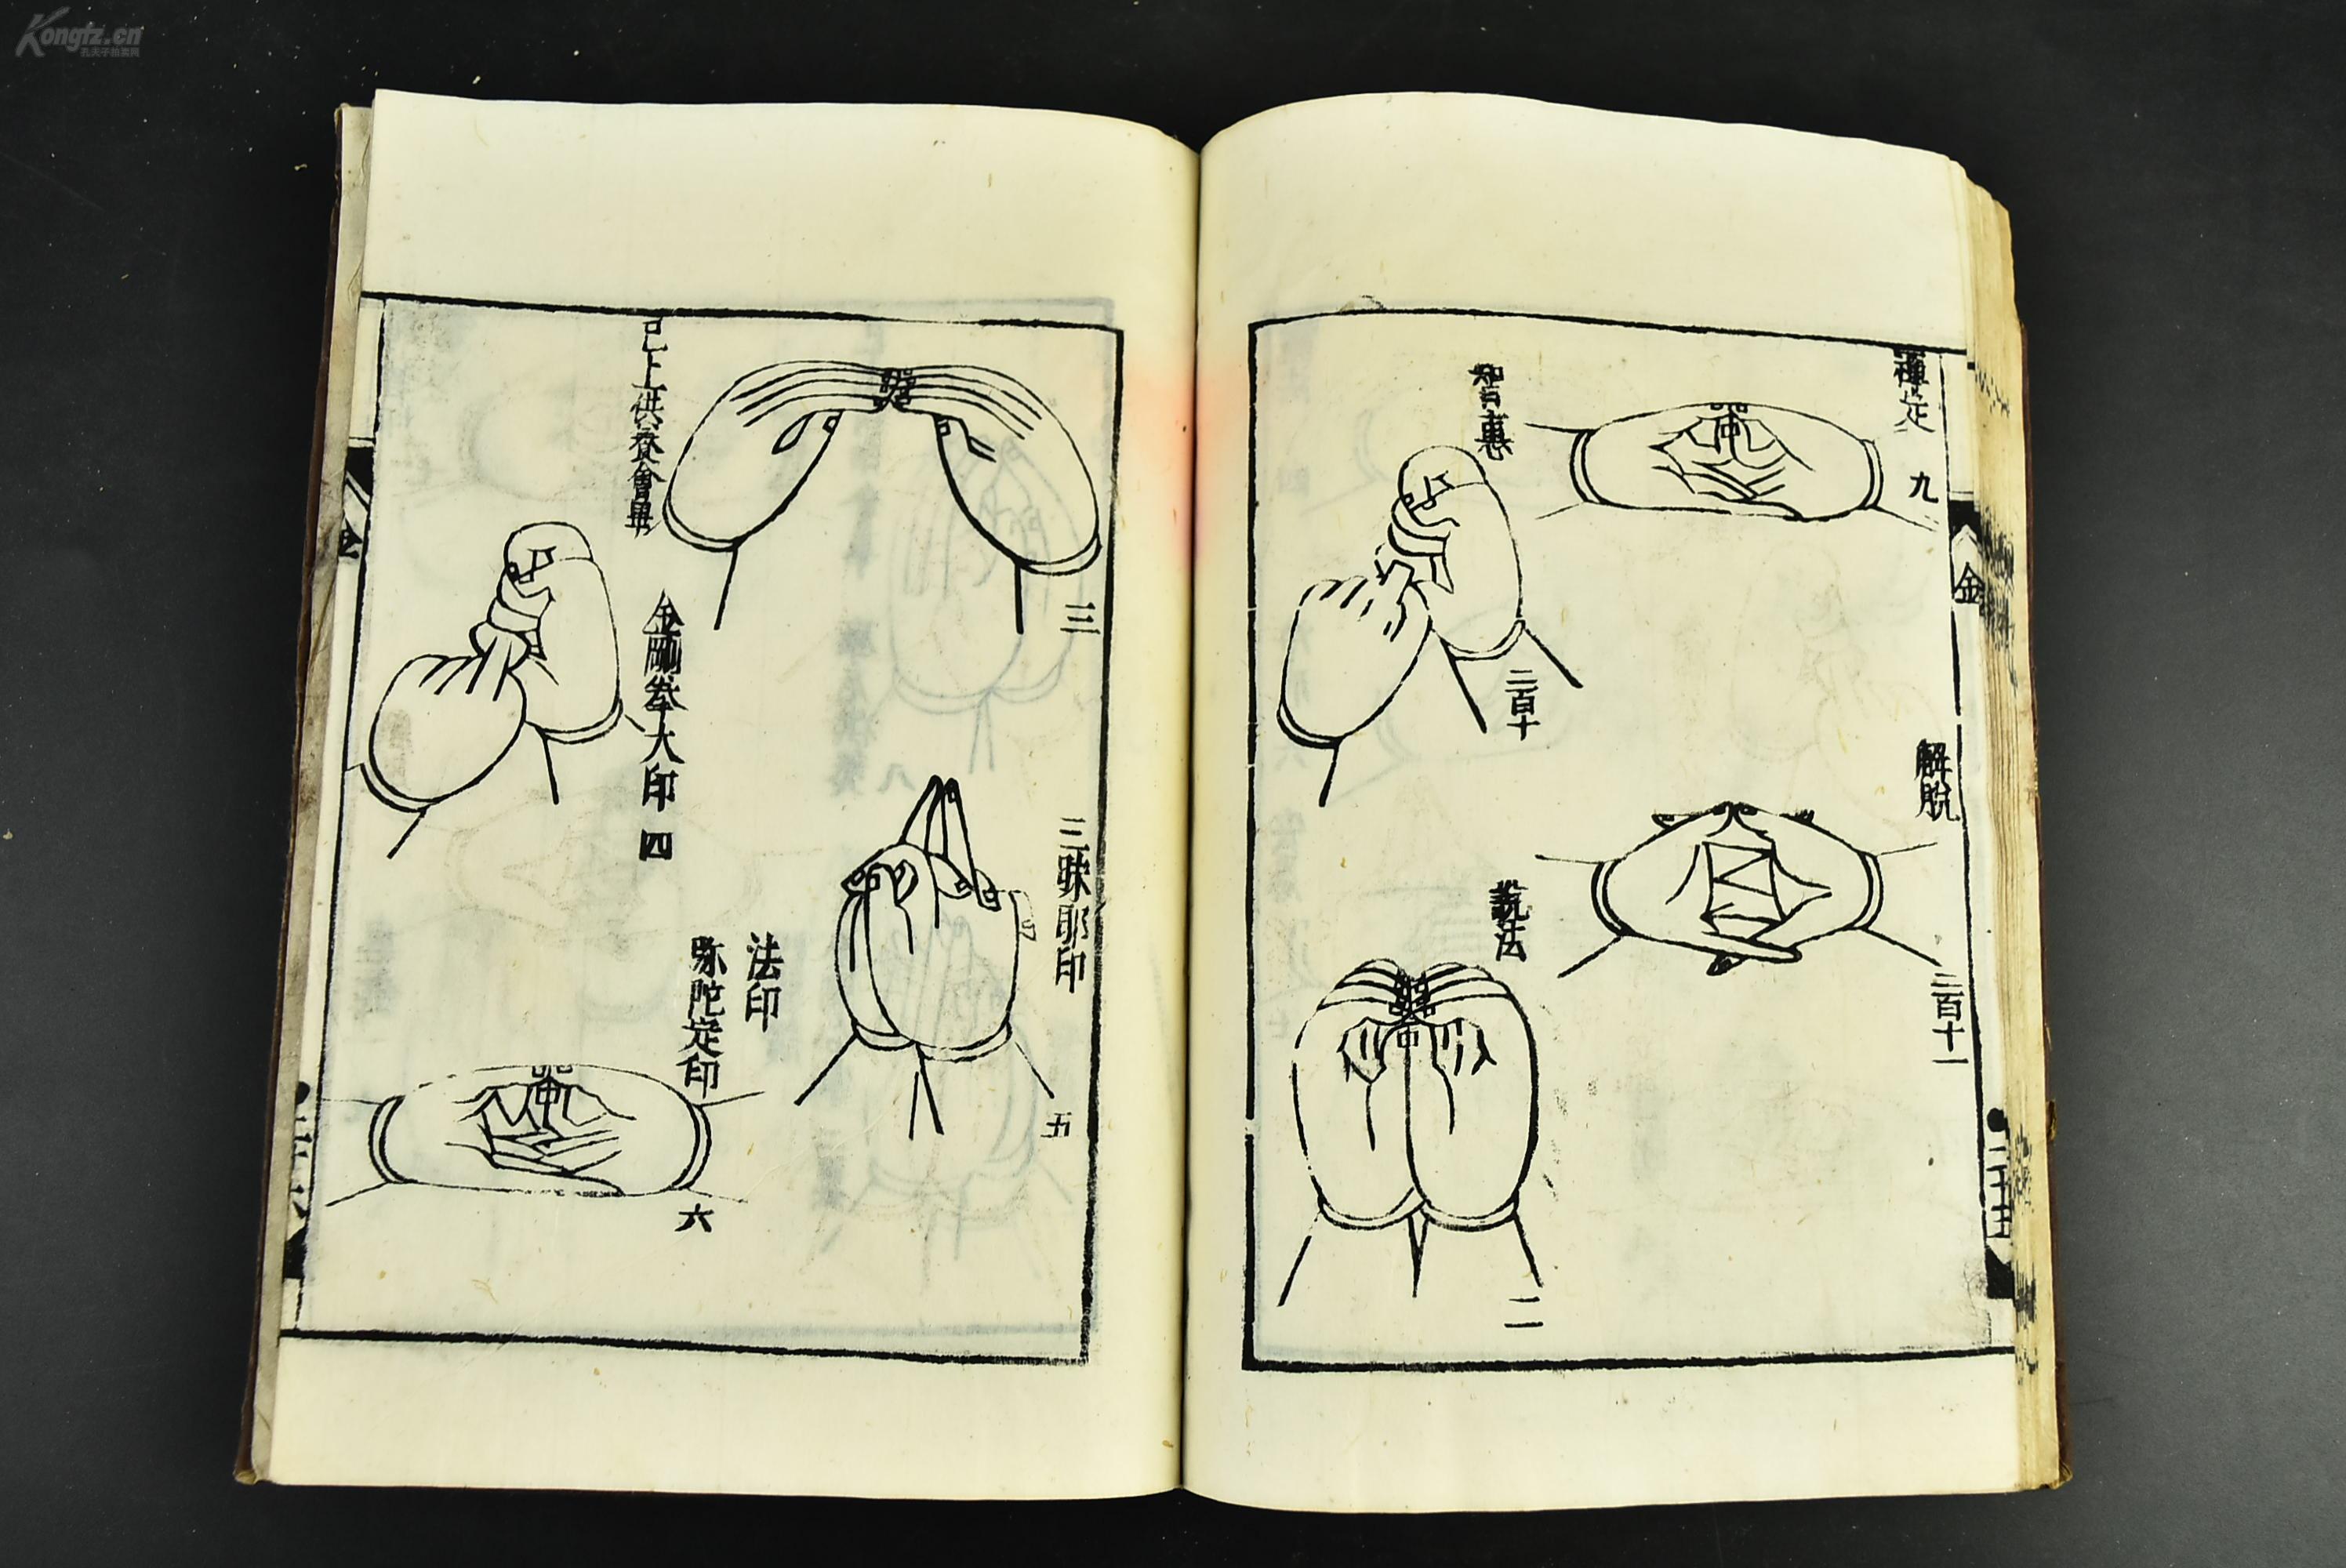 Kongfz.cn
孔夫子拍卖网
禪定
九
智惠
二百十
解脫
二百十一
說法
二
金
二十五
三
已上供養會畢
金剛拳大印
四
三昧耶印
五
法印
弥陀定印
六